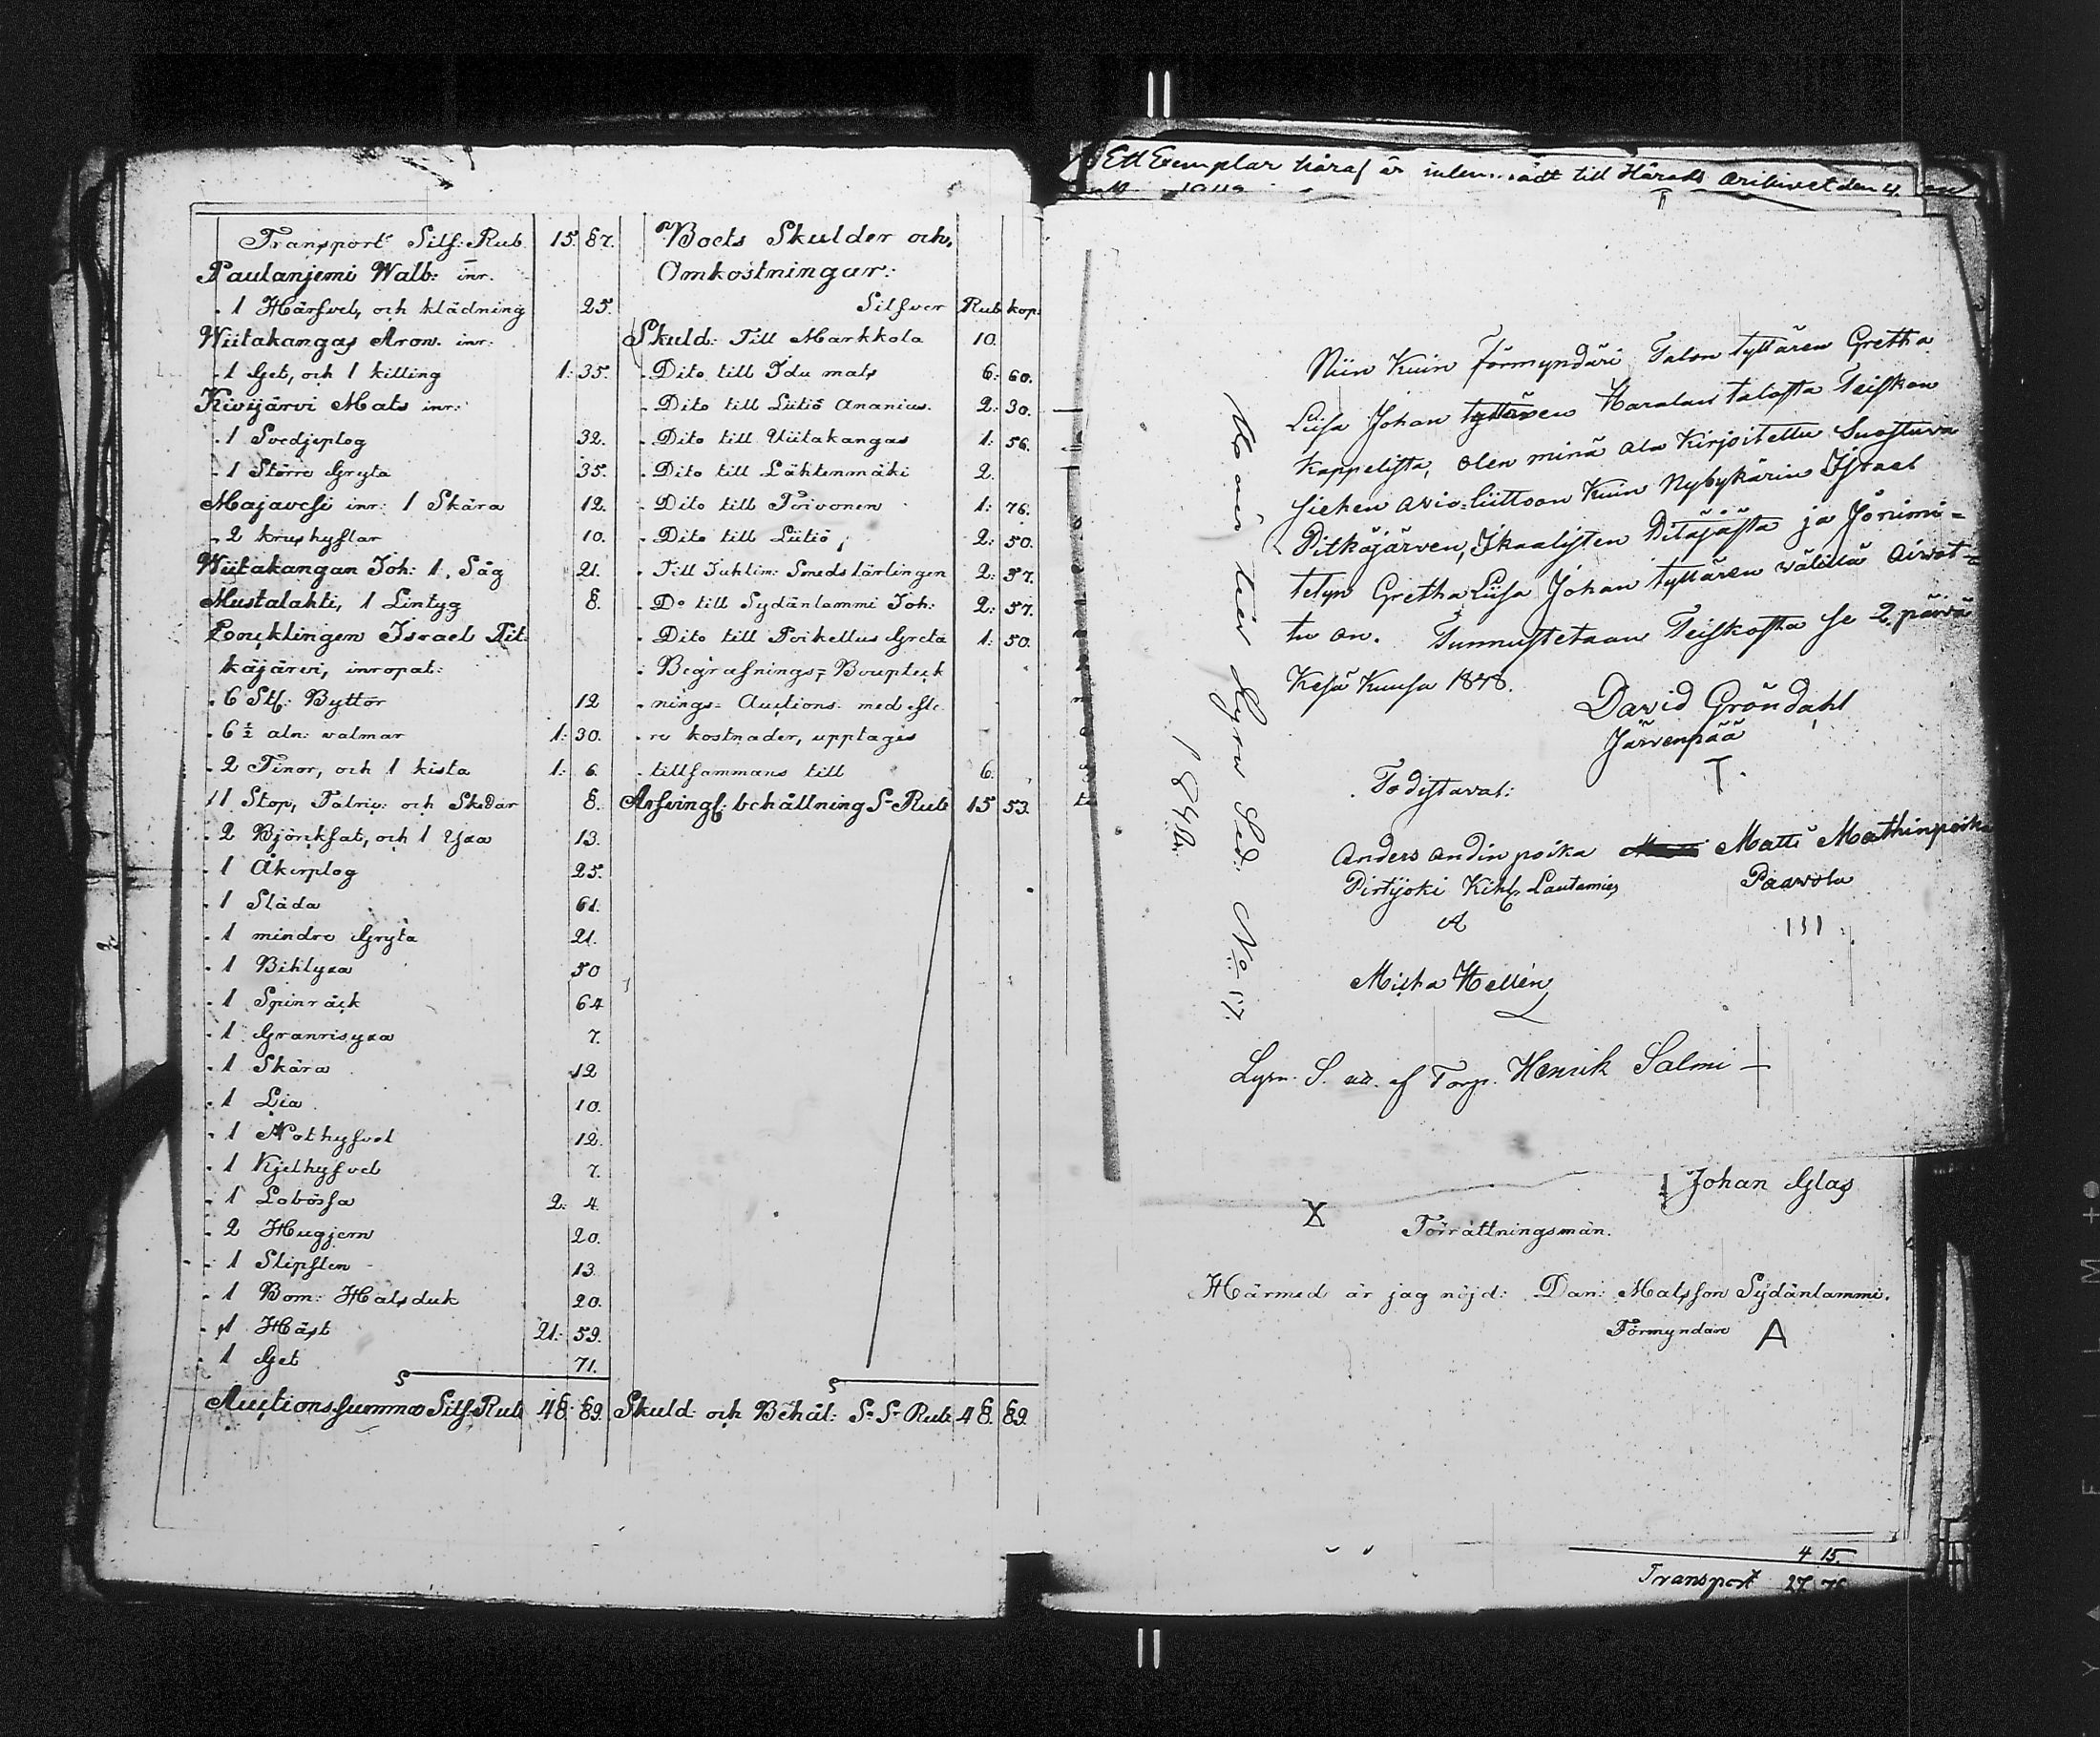 Transport Silf: Rub. 15. 87.
Paulanjemi Walb: inr.
1 Härfvel, och klädning 25.
Wiitakangas Aron. inr:
1 Get, och 1 killing 1: 35.
Kivijärvi Mats inr:
1 Svedjeplog 32.
1 Större Gryta 35.
Majavesi inr: 1 Skära 12.
2 krushyflar 10.
Wiitakangan Joh: 1. Såg 21.
Mustalahti, 1 Lintyg 8.
Israel Pit
käjärvi, inropat:
6 St: Byttor 12
6 ½ aln: valmar 1: 30.
2 Tinor, och 1 kista 1: 6.
1 Stop, Talrik: och Skedar 8.
2 Björkfat, och 1 Yxa 13.
1 Åkerplog 25.
1 Släda 61.
1 mindre Gryta 21.
1 Bihlyxa 50
1 Spinråck 64
1 Granrisyxa 7.
1 Skära 12
1 Lia 10.
1 Nothyfvel 12.
1 Kjelhyfvel 7.
1 Lobössa 2: 4.
2 Hugjern 20.
1 Slipsten 13.
1 Bom: Halsduk 20.
1 Häst 21: 59.
1 Get 71.
Auctions summa Silf Rub 48. 89.
Boets Skulder och,
Omkostningar:
Silfver Rub kop:
Skuld: Till Markkola 10.
Dito till Idu mats 6: 60.
Dito till Liitiö Ananius. 2: 30.
Dito till Uiitakangas 1: 56.
Dito till Lähteenmäki 2.
Dito till Toivonen 1: 76.
Dito till Liitiö 2: 50.
Till Juhlin: Smedslärlingen 2: 57.
Do till Sydänlammi Joh: 2: 57.
Dito till Poikellus Greta 1: 50.
Begrafnings- Bouptek
nings- Auctions med fle
re kostnader, upptages
tillsammans till 6.
Arfving: behållning S- Rub 15 53.
Skuld: och Behål: S: S- Rub 48. 89.
Ett Exemplar häraf är till Härads Arkivet den 4.
Niin Kuin Förmyndäri Talon tyttären Gretha
Liisa Johan tyttären Haralan talosta Teiskon
Kappelista, olen minä ala Kirjoitettu Suostuva
siehen avio-liittoon Kuin Nybykärin Israel
Pitkäjärven, Ikaalisten Pitäjästä ja Jonimi-
tetyn Gretha Liisa Johan tyttären välillä aivot-
tu on. Tunnustetaan Teiskosta se 2. päivä
Kesä Kuusa 1848.
David Gröndahl
Järvenpää
T.
Todistavat:
Anders Andin poika Matti Mathinpoika
Pirtijoki Kihl Lautamies Paavola
A III
Micha Hellén
Lysn. S. ut. af Torp. Henrik Salmi
Lysn Sed: No 17.
1848.
Johan Glas
X
Förrättningsmän.
Härmed är jag nöjd: Dan: Matsson Sydänlammi.
Förmyndare A
4 15.
Transport